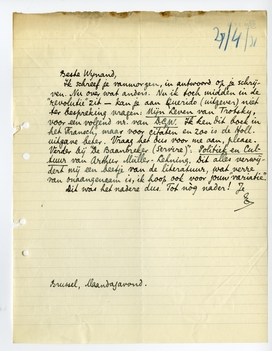 29/4/31
Beste Wijnand,
Ik schreef je vanmorgen, in antwoord op je schrij-
ven. Nu over wat anders. Nu ik toch midden in de
"revolutie" zit – kan je aan Querido (uitgever) niet
ter bespreking vragen: Mijn Leven van Trotsky,
voor een volgend nr. van D.G.W. Ik ken dit boek in
het Fransch, maar voor citaten en zoo is de Holl.
uitgave beter. Vraag het dus voor me aan, please.
Verder bij De Baanbreker (Servire): Politiek en Cul-
tuur van Arthur Müller-Lehning. Dit alles verwij-
dert mij een beetje van de literatuur, wat verre
van onaangenaam is; ik hoop ook voor jouw "variatie".
Dit was het nadere dus. Tot nog nader! Je
E
Brussel, Maandagavond.